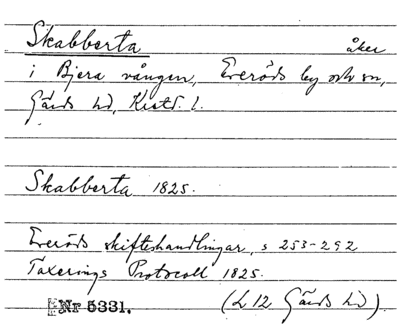 Skabberta åker
i Bjera vången, Everöds by och sn,
Gärds hd, Krist. l.
Skabberta 1825.
Everöds skifteshandlingar, s 253-292
Taxerings Protocoll 1825.
Nr 5331. (L 12 Gärds hd)